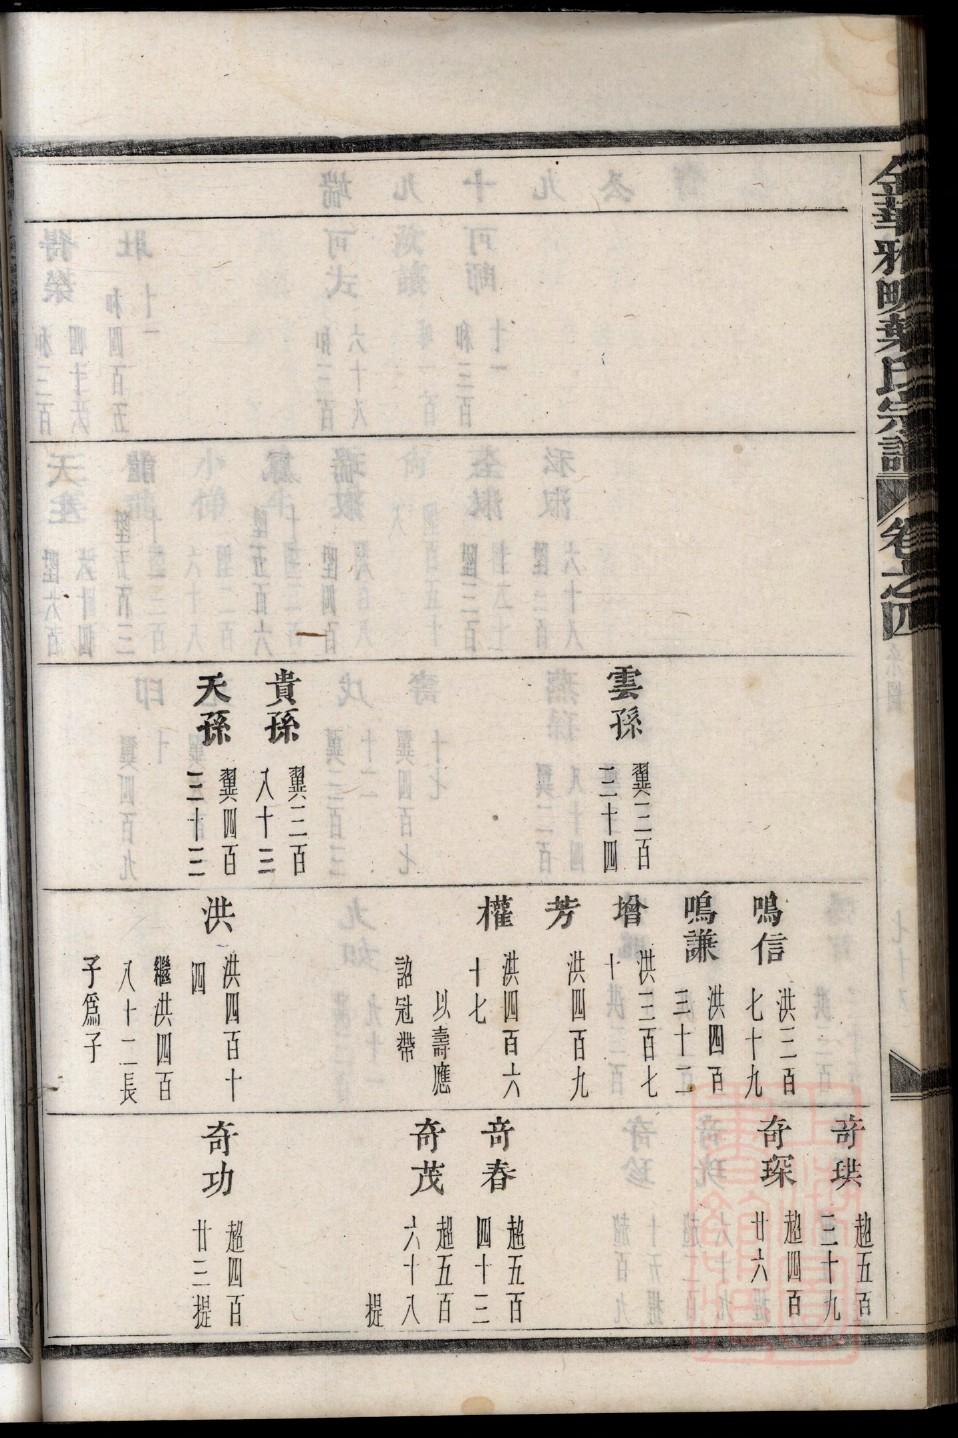 金華雅畈葉氏宗譜
卷之四
雲孫
翼二百
三十四
貴孫
翼二百
八十三
天孫
翼四百
三十三
鳴信
洪二百
七十九
鳴謙
洪四百
三十二
增
洪三百七
十
芳
洪四百九
權
洪四百六
十七
以壽應
詔冠帶
洪
洪四百十
四
繼洪四百
八十二長
子爲子
奇珙
趙五百
三十九
奇琛
趙四百
廿六
奇春
趙五百
四十三
奇茂
趙五百
六十八
提
奇功
趙四百
廿三提